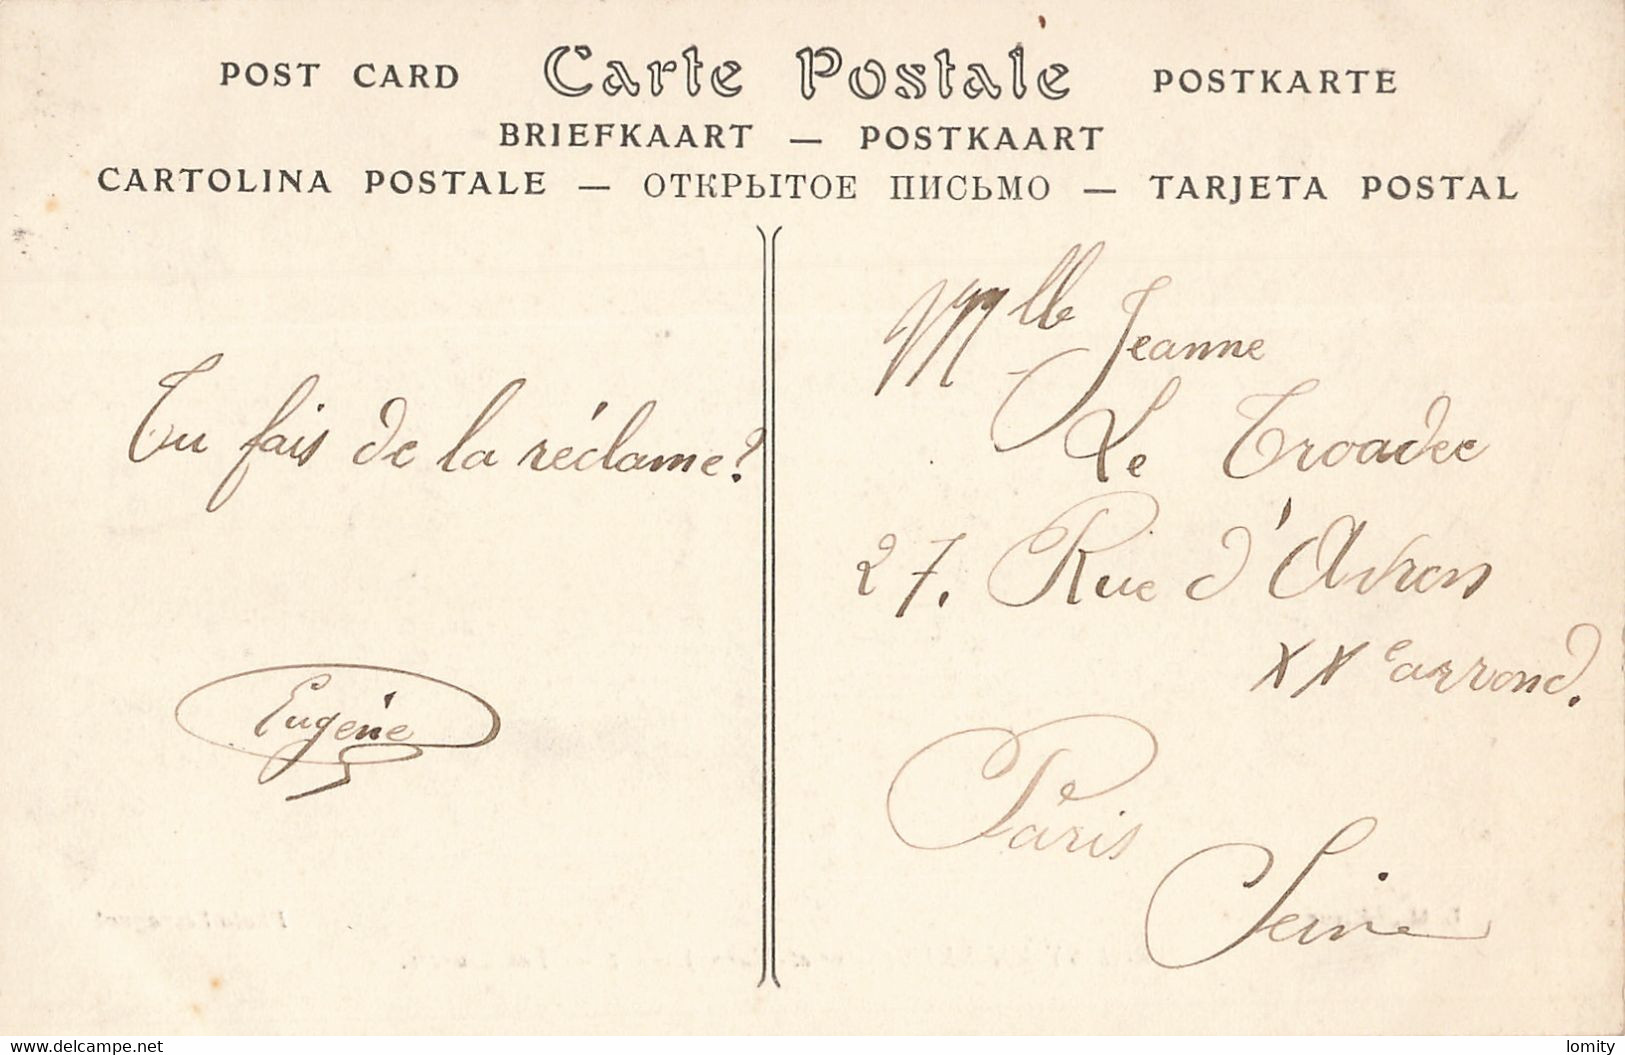 POST CARD Carte Postale POSTKARTE
BRIEFKAART — POSTKAART
CARTOLINA POSTALE — ОТКРЫТОЕ ПИСЬМО — TARJETA POSTAL
Tu fais de la réclame?
Eugène
Mlle Jeanne
Le Troadec
27. Rue d'Avron
XXe arrond.
Paris
Seine
www.delcampe.net
lomity